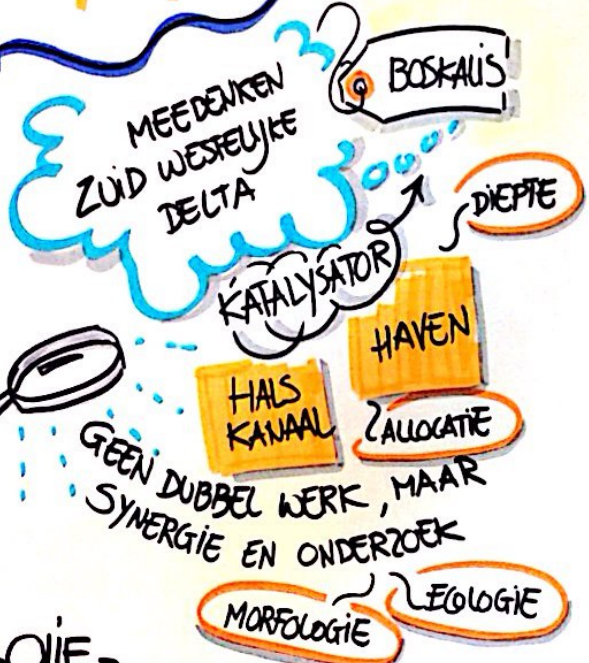 BOSKALIS
MEEDENKEN
ZUID WESTELIJKE
DELTA
DIEPTE
KATALYSATOR
HAVEN
HALS
KANAAL
ALLOCATIE
GEEN DUBBEL WERK, MAAR
SYNERGIE EN ONDERZOEK
MORFOLOGIE
ECOLOGIE